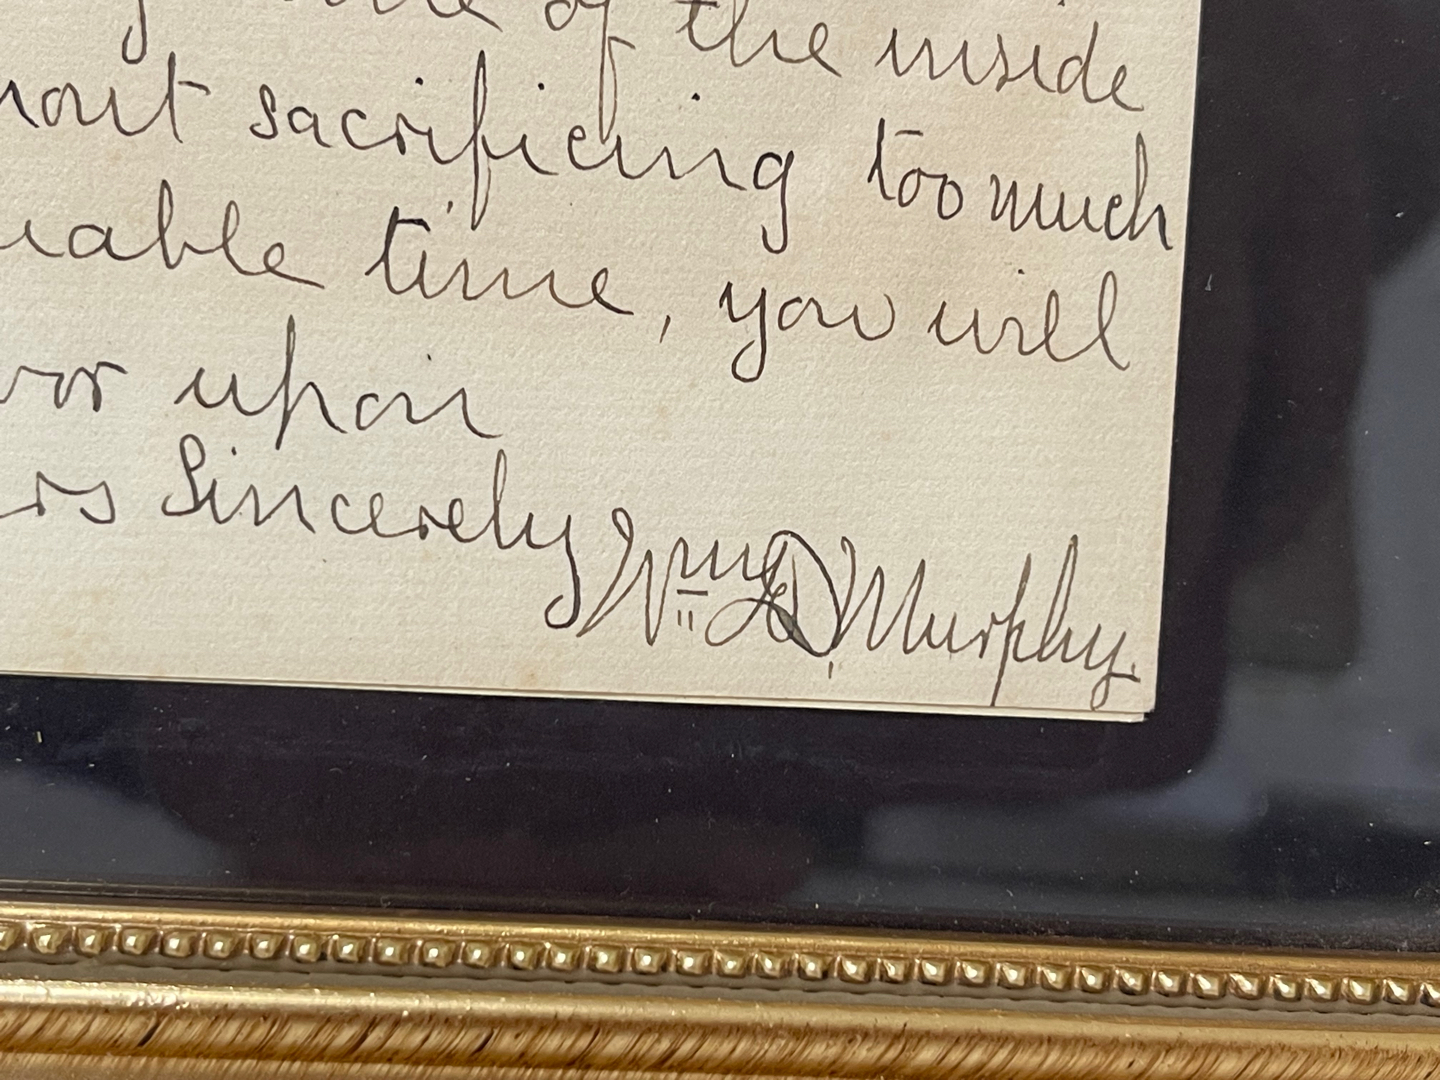 of the inside
out sacrificing too much
uable time, you will
vor upon
rs Sincerely Wm D. Murphy.